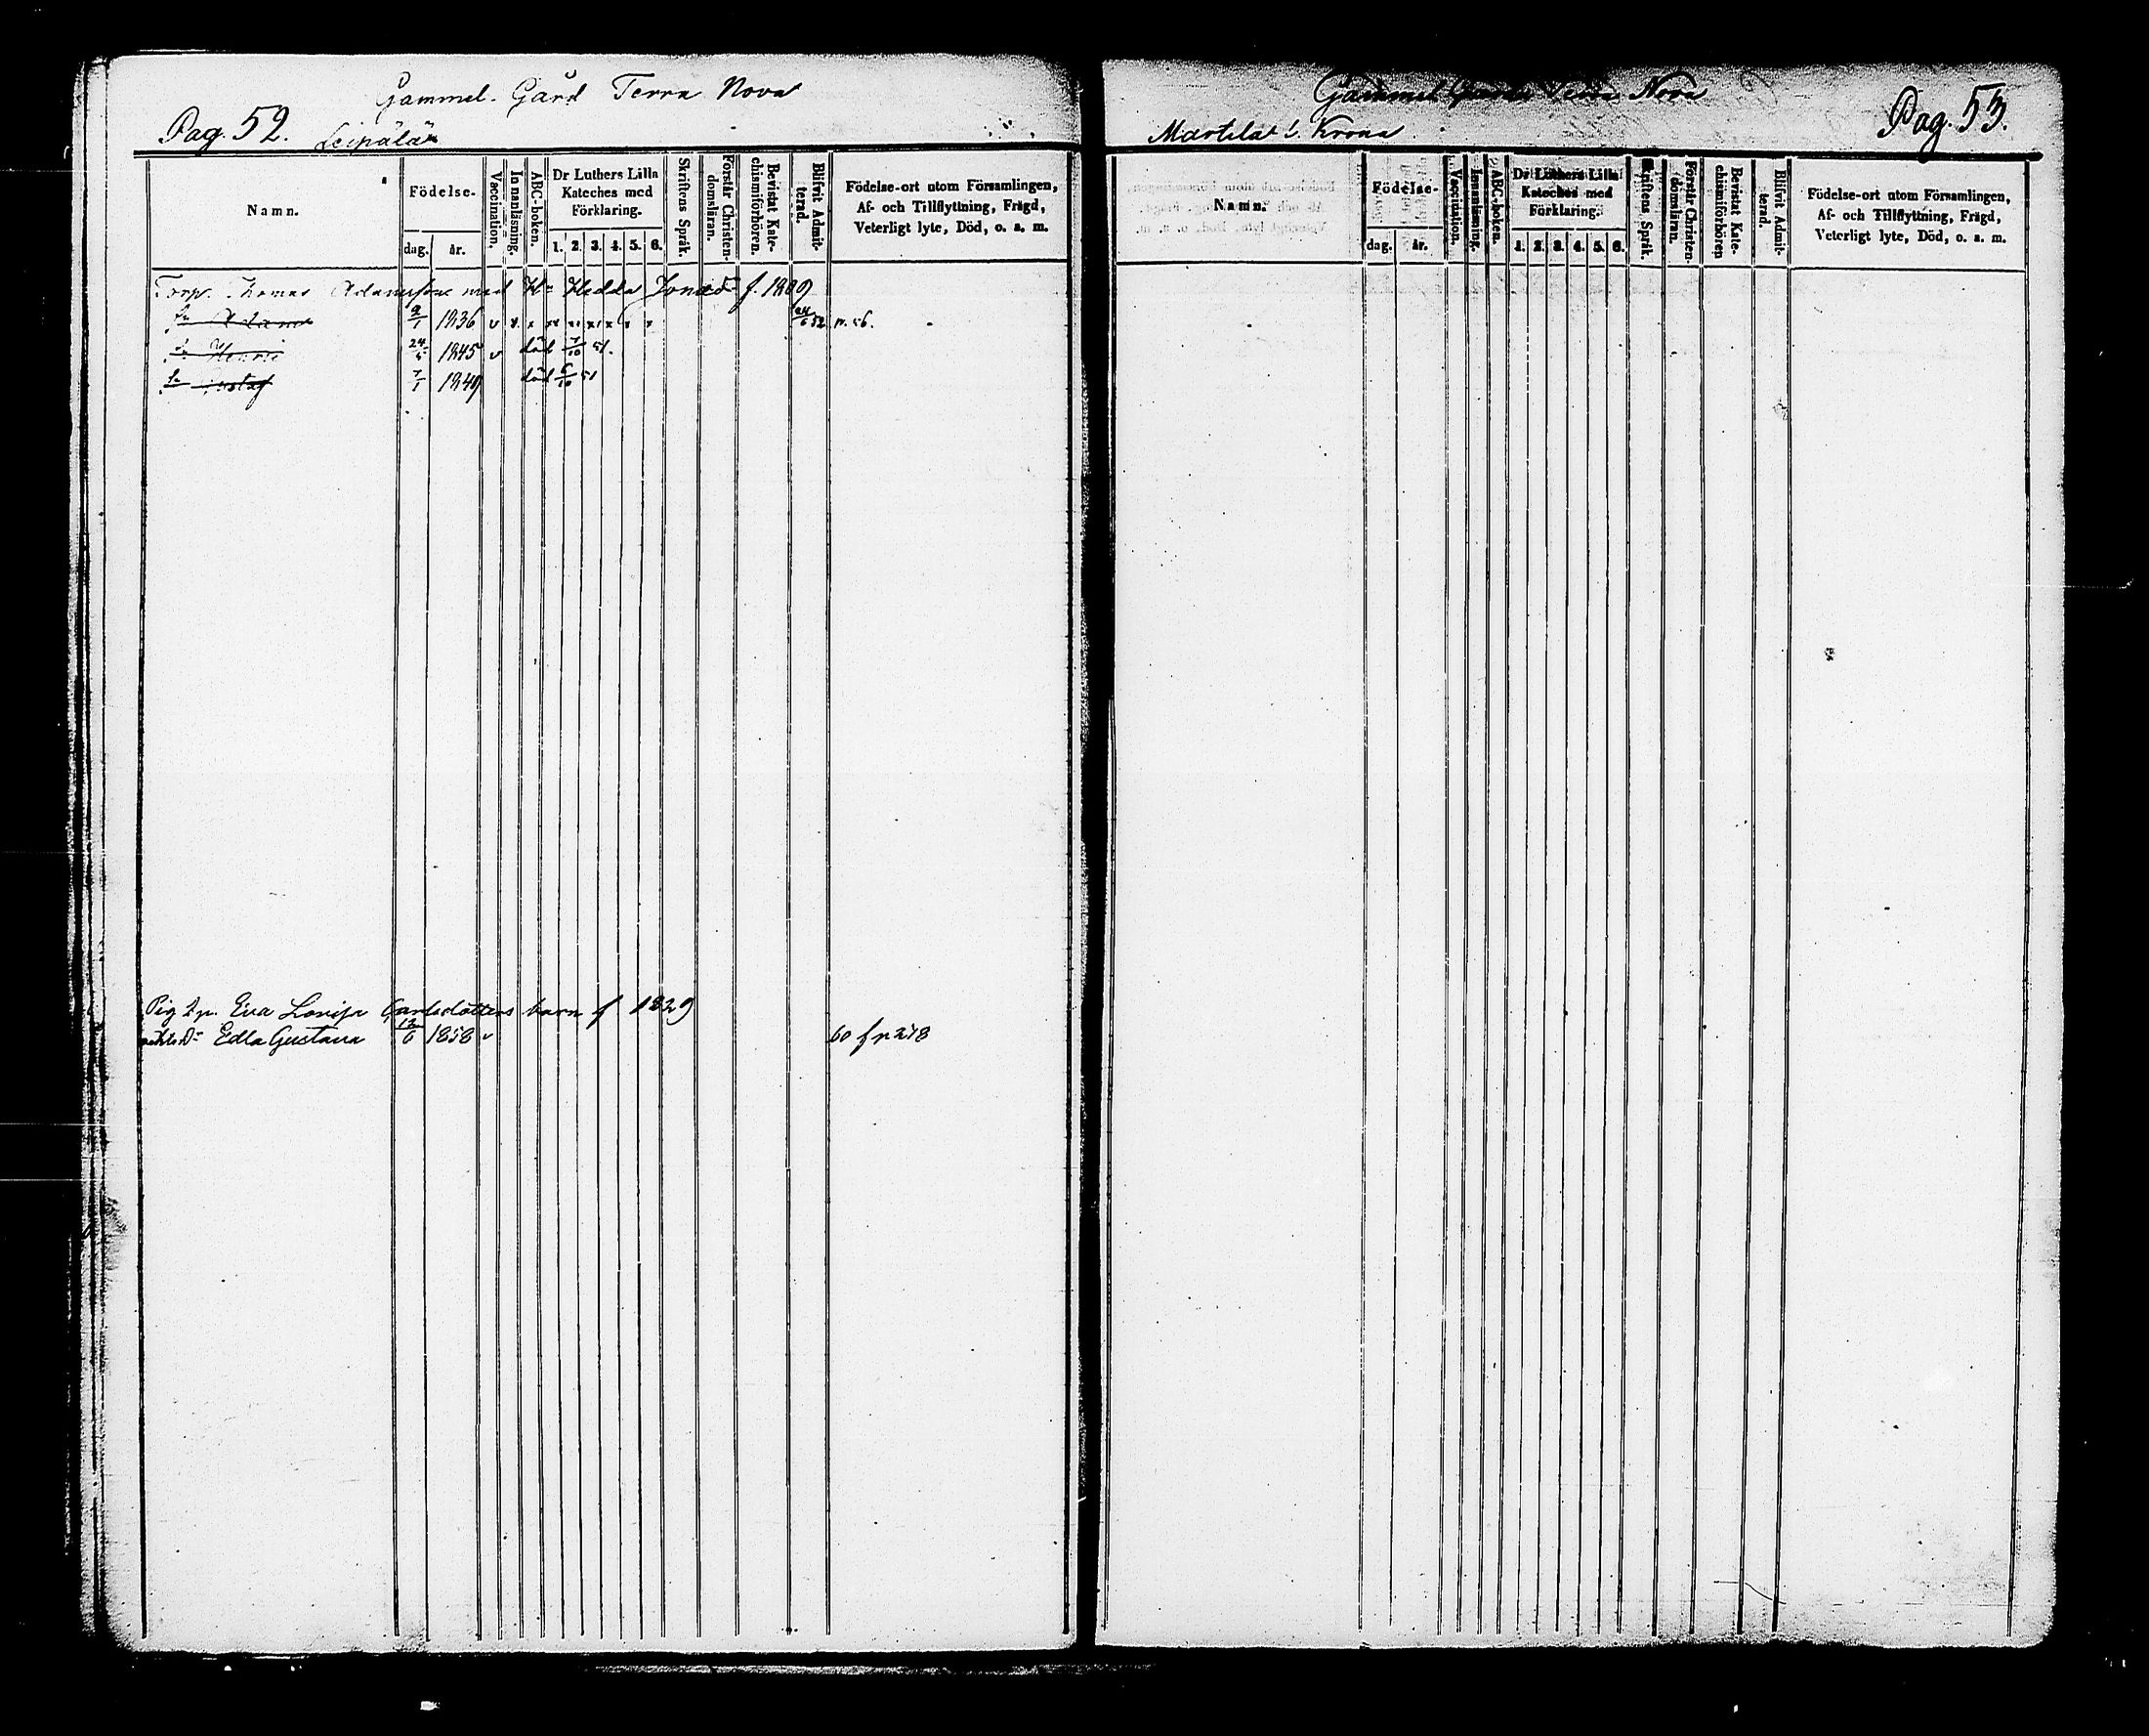 Gammel Gård Terra Nova
Pag. 52. Leipälä
Namn.
Födelse-
dag. år.
Vaccination.
Innanläsning.
ABC-boken.
Dr Luthers Lilla
Kateches med
Förklaring.
1. 2. 3. 4. 5. 6.
Skriftens Språk.
Förstår Christen-
domsläran.
Bevistat Kate-
chismiförhören.
Blifvit Admit-
terad.
Födelse-ort utom Församlingen,
Af- och Tillflyttning, Frägd,
Veterligt lyte, Död, o. s. m.
Torp. Thomas Adamsson med H. Hedda Jonæd. f. 1809
S. Adam 9/1 1836 v x x xx x x x x x 24/6 52 p. 56.
S. Henric 24/5 1845 v död 7/10 51.
S. Gustaf 7/1 1849 död 5/10 51
Pig Eva Lovisa Carlsdotters barn f 1829
D. Edla Gustava 12/6 1858 v 60 f p 278
Gammel Gård Terra Nova
Martila Krona
Pag. 53.
Namn.
Födelse-
dag. år.
Vaccination.
Innanläsning.
ABC-boken.
Dr Luthers Lilla
Kateches med
Förklaring.
1. 2. 3. 4. 5. 6.
Skriftens Språk.
Förstår Christen-
domsläran.
Bevistat Kate-
chismiförhören
Blifvit Admit-
terad.
Födelse-ort utom Församlingen,
Af- och Tillflyttning, Frägd,
Veterligt lyte, Död, o. s. m.